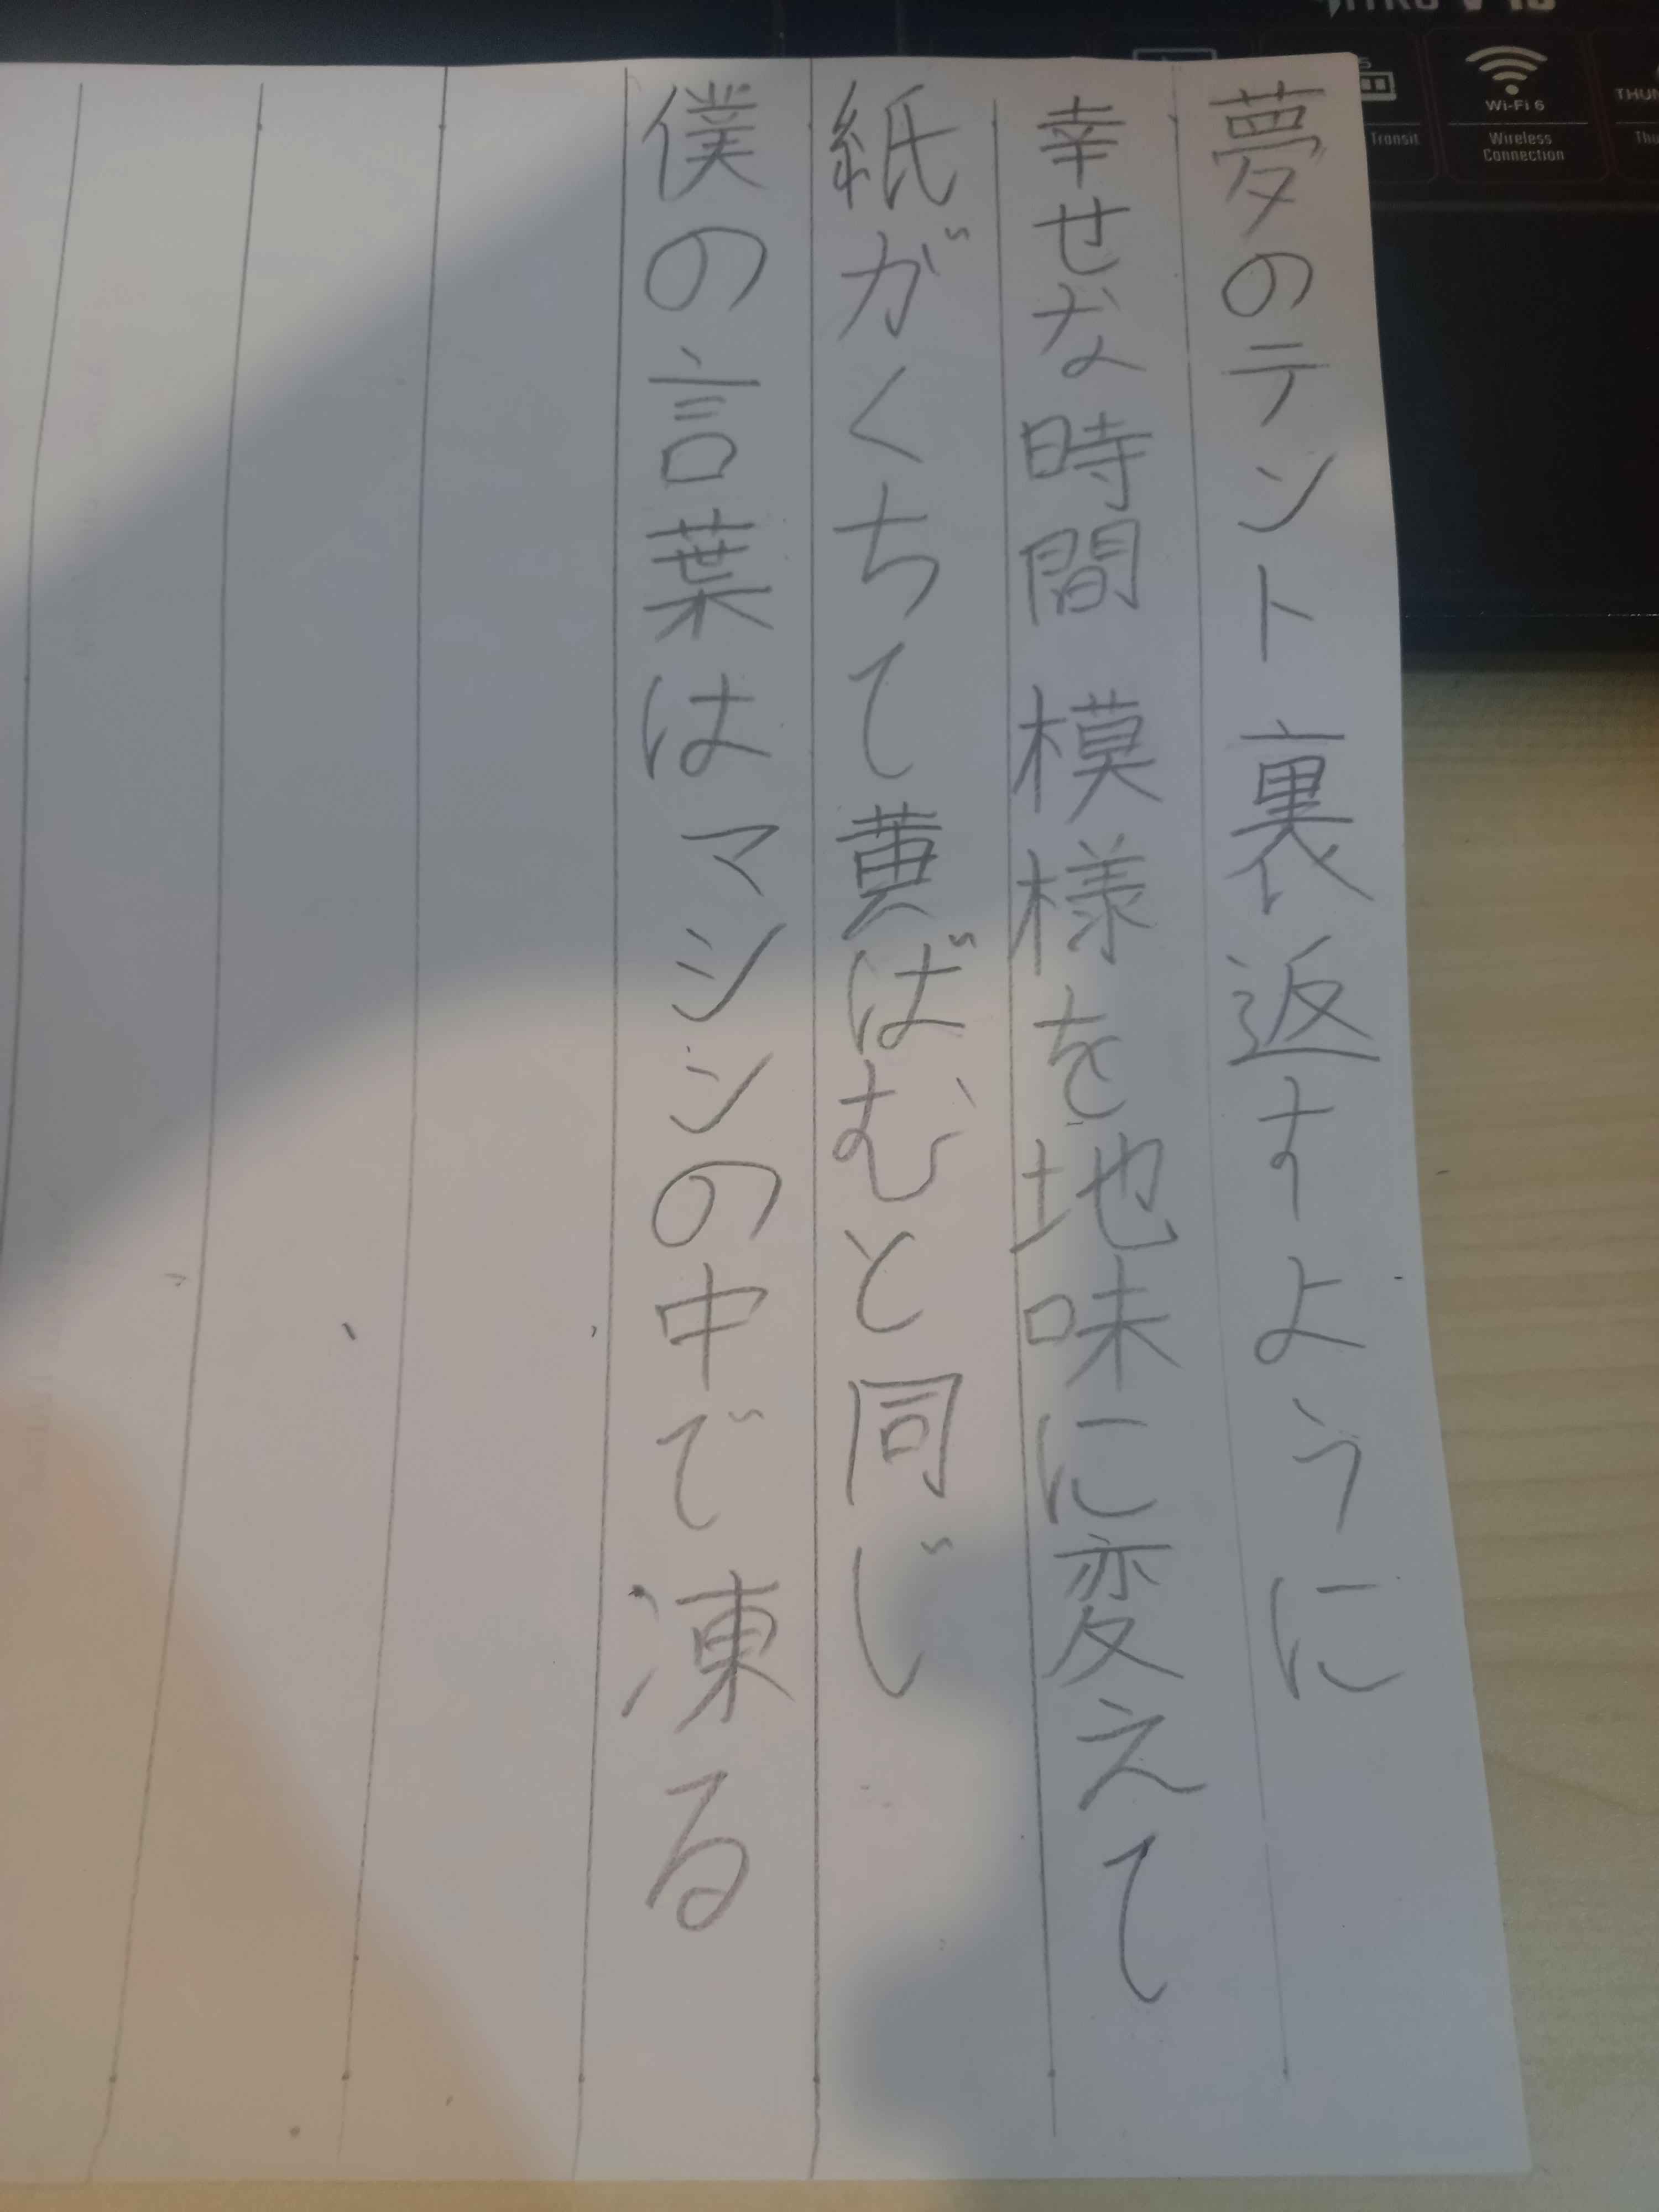 夢のテント裏返すように
幸せな時間模様を地味に変えて
紙がくちて黄ばむと同じ
僕の言葉はマシンの中で凍る
Wi-Fi 6
Wireless
Connection
Transit